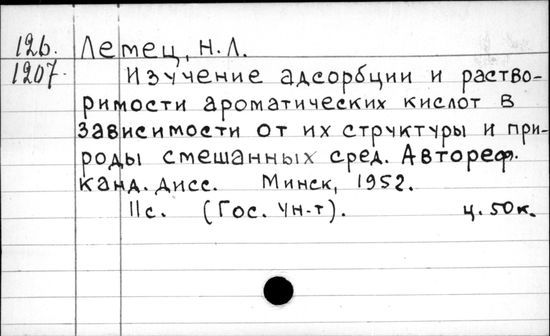 126. Лемец, Н.Л.
1207. Изучение адсорбции и раство-
римости ароматических кислот в
зависимости от их структуры и при-
роды смешанных сред. Автореф.
канд. дисс. Минск, 1952.
11с. (Гос. Ун-т). ц. 50к.